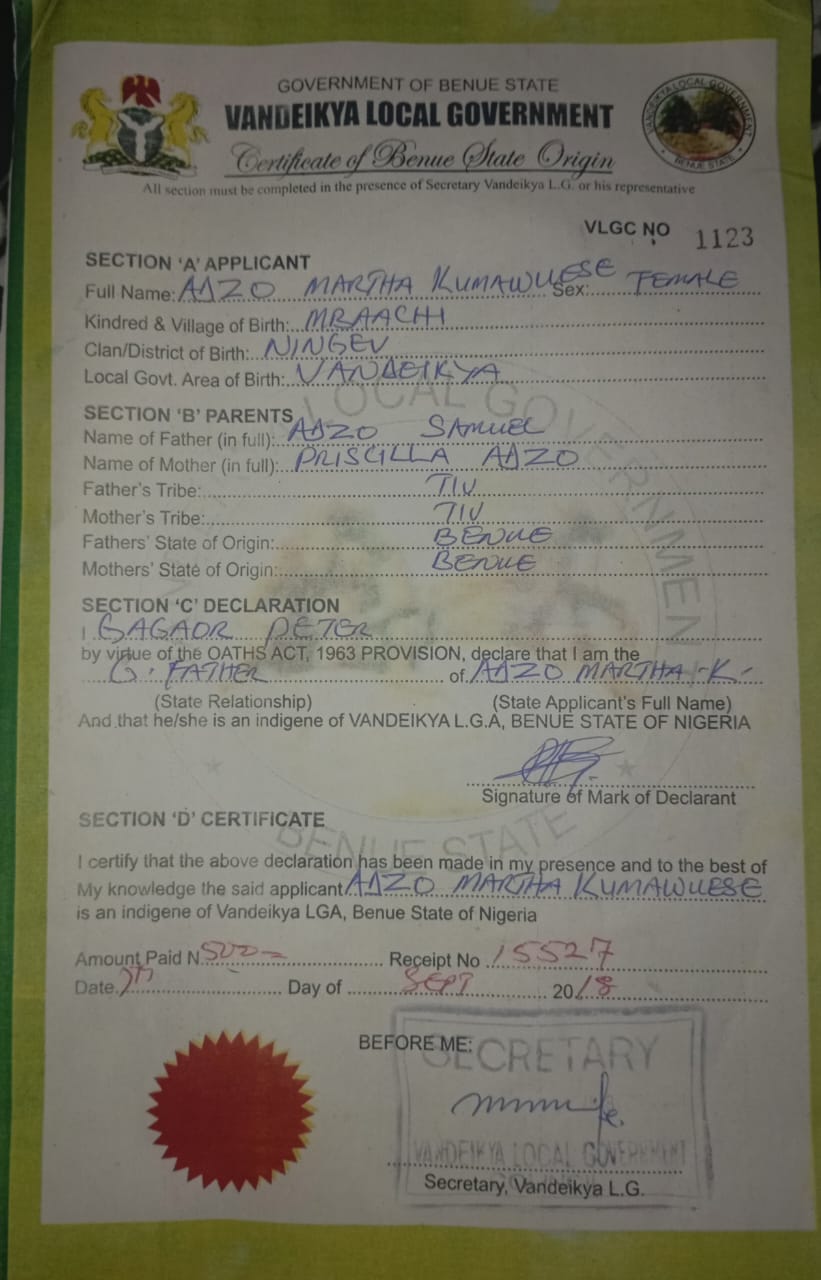 GOVERNMENT OF BENUE STATE
VANDEIKYA LOCAL GOVERNMENT
Certificate of Benue State Origin
All section must be completed in the presence of Secretary Vandeikya L.G. or his representative
VANDEIKYA LOCAL GOVERNMENT
BENUE STATE
VLGC NO 1123
SECTION 'A' APPLICANT
Full Name: ADZO MARTHA KUMAWUESE Sex: FEMALE
Kindred & Village of Birth: MBAACHI
Clan/District of Birth: NINGEV
Local Govt. Area of Birth: VANDEIKYA
SECTION 'B' PARENTS
Name of Father (in full): ADZO SAMUEL
Name of Mother (in full): PRISCILLA ADZO
Father's Tribe: TIV
Mother's Tribe: TIV
Fathers' State of Origin: BENUE
Mothers' State of Origin: BENUE
SECTION 'C' DECLARATION
I GAGAOR PETER
by virtue of the OATHS ACT, 1963 PROVISION, declare that I am the
G. FATHER of ADZO MARTHA K.
(State Relationship) (State Applicant's Full Name)
And that he/she is an indigene of VANDEIKYA L.G.A, BENUE STATE OF NIGERIA
Signature of Mark of Declarant
SECTION 'D' CERTIFICATE
I certify that the above declaration has been made in my presence and to the best of
My knowledge the said applicant ADZO MARTHA KUMAWUESE
is an indigene of Vandeikya LGA, Benue State of Nigeria
Amount Paid N 500= Receipt No 15527
Date 7th Day of SEPT 2018
BEFORE ME:
SECRETARY
VANDEIKYA LOCAL GOVERNMENT
Secretary, Vandeikya L.G.
LOCAL GOVERNMENT
BENUE STATE